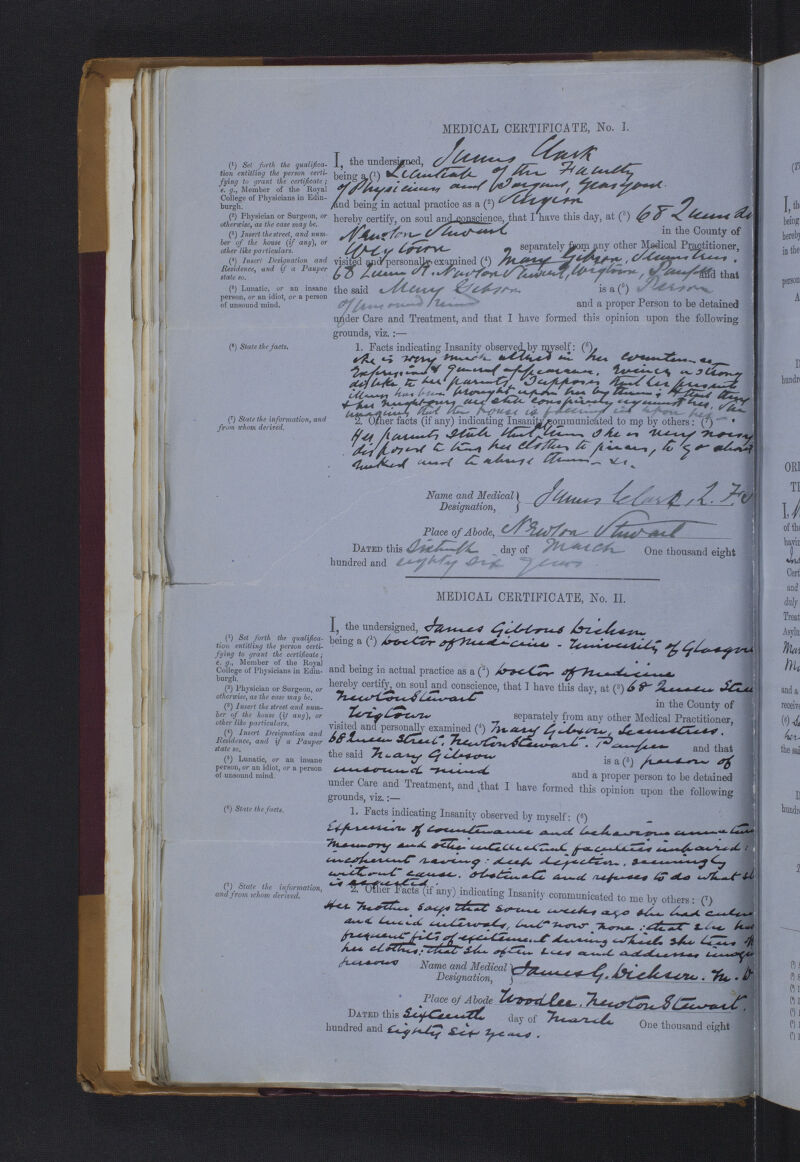 MEDICAL CERTIFICATE, No. I.
(¹) Set forth the qualifica-
tion entitling the person certi-
fying to grant the certificate;
e. g., Member of the Royal
College of Physicians in Edin-
burgh.
(²) Physician or Surgeon, or
otherwise, as the case may be.
(³) Insert the street, and num-
ber of the house (if any), or
other like particulars.
(⁴) Insert Designation and
Residence, and if a Pauper
state so.
(⁵) Lunatic, or an insane
person, or an idiot, or a person
of unsound mind.
(⁶) State the facts.
(⁷) State the information, and
from whom derived.
I, the undersigned, James Clark
being a (¹) Licentiate of the Faculty
of Physicians and Surgeons, Glasgow
and being in actual practice as a (²) Surgeon
hereby certify, on soul and conscience, that I have this day, at (³) 68 Queen
Newton Stewart in the County of
Wigtown separately from any other Medical Practitioner,
visited and personally examined (⁴) Mary Gibson, Seamstress.
68 Queen St. Newton Stewart, Wigtown, Pauper and that
the said Mary Gibson is a (⁵) Person
of unsound mind and a proper Person to be detained
under Care and Treatment, and that I have formed this opinion upon the following
grounds, viz. :—
1. Facts indicating Insanity observed by myself: (⁶)
she is very much altered in her countenance
Expression & general appearance. Evinces a strong
dislike to her parents. Supposes that her present
illness has been brought upon her by them & that they
& her neighbours are still conspiring against her. She
imagines that the house is upon her.
2. Other facts (if any) indicating Insanity communicated to me by others: (⁷)
Her parents state that she is very noisy
disposed to tear her clothes to pieces, to go about
naked and to abuse them &c.
Name and Medical Designation, James Clark, L. F.
Place of Abode, Newton Stewart
DATED this Sixteenth day of March One thousand eight
hundred and eighty six years
MEDICAL CERTIFICATE, No. II.
(¹) Set forth the qualifica-
tion entitling the person certi-
fying to grant the certificate;
e. g., Member of the Royal
College of Physicians in Edin-
burgh.
(²) Physician or Surgeon, or
otherwise, as the case may be.
(³) Insert the street and num-
ber of the house (if any), or
other like particulars.
(⁴) Insert Designation and
Residence, and if a Pauper
state so.
(⁵) Lunatic, or an insane
person, or an idiot, or a person
of unsound mind.
(⁶) State the facts.
(⁷) State the information,
and from whom derived.
I, the undersigned, James Gibbons Dickson
being a (¹) Doctor of Medicine - University of Glasgow
and being in actual practice as a (²) Doctor of Medicine
hereby certify, on soul and conscience, that I have this day, at (³) 68 Queen Stre
Newton Stewart in the County of
Wigtown separately from any other Medical Practitioner,
visited and personally examined (⁴) Mary Gibson, Seamstress.
68 Queen Street, Newton Stewart. Pauper and that
the said Mary Gibson is a (⁵) person of
unsound mind and a proper person to be detained
under Care and Treatment, and that I have formed this opinion upon the following
grounds, viz. :—
1. Facts indicating Insanity observed by myself: (⁶)
Expression of countenance and behaviour
memory and other intellectual faculties impaired:
incoherent raving: deep dejection, seemingly
without cause. obstinate and refuses to do what
is requested.
2. Other Facts (if any) indicating Insanity communicated to me by others: (⁷)
Her mother says that some weeks ago she had
and lucid intervals, but now none: that she has
frequent fits of excitement during which she tears
her clothes: that she often sees and addresses
persons
Name and Medical Designation, James G. Dickson. M. D
Place of Abode Woodlee. Newton Stewart.
DATED this Sixteenth day of March One thousand eight
hundred and Eighty Six years.